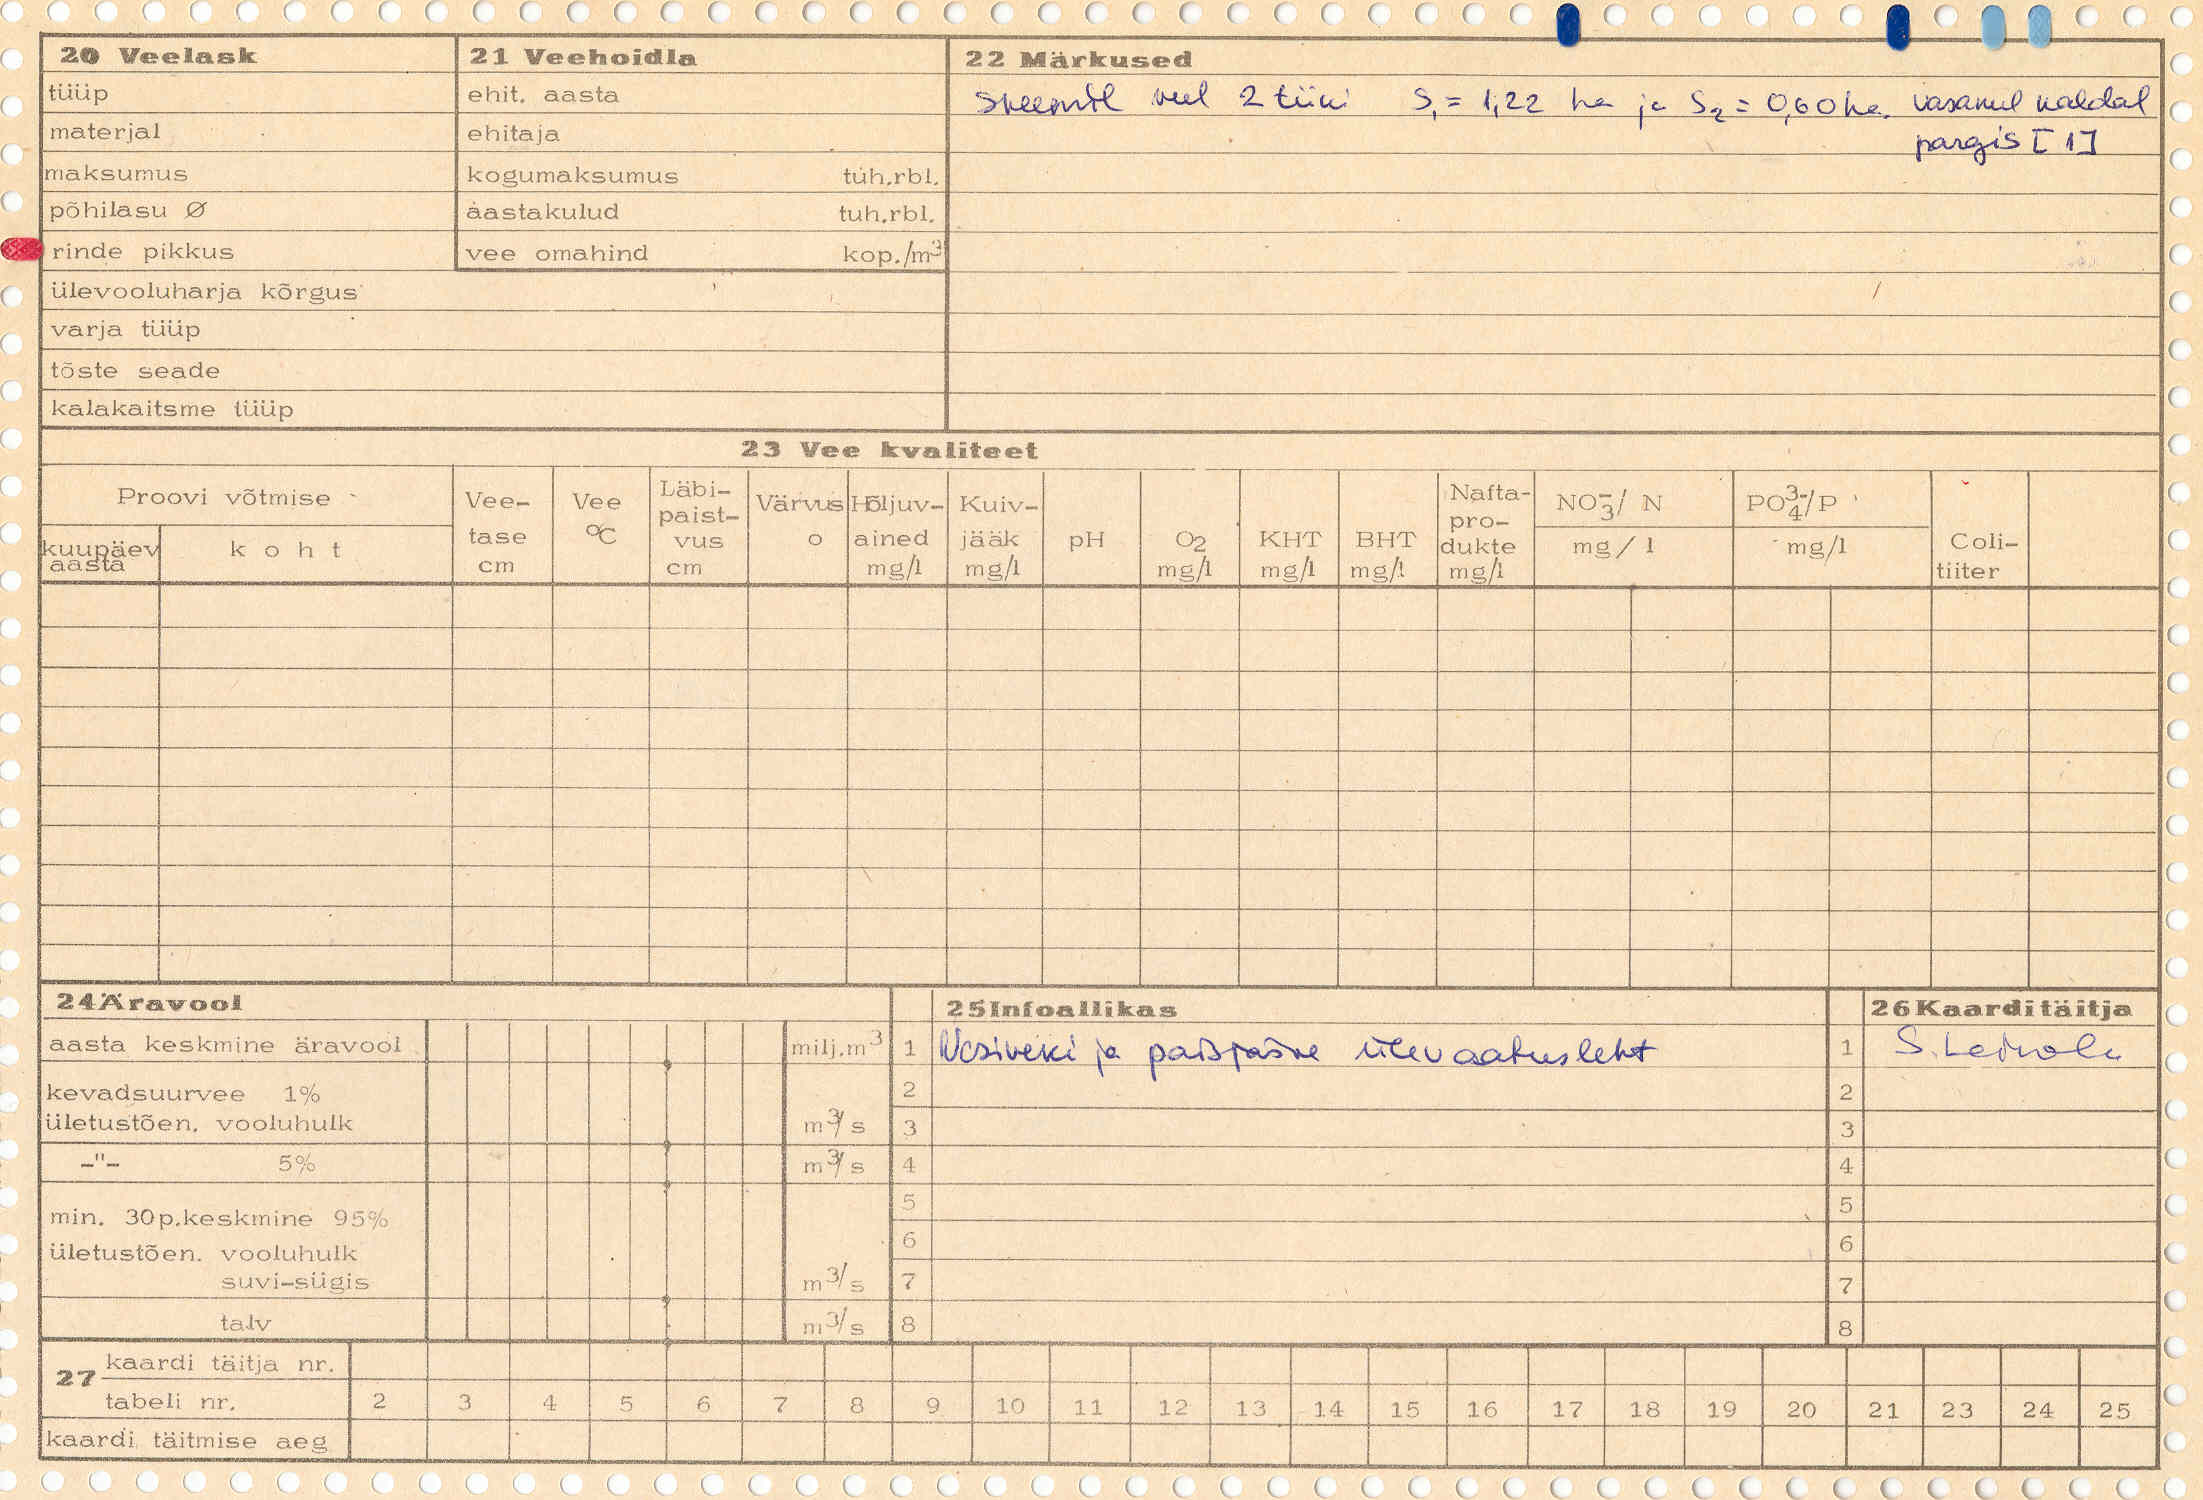 20 Veelask
tüüp
materjal
maksumus
põhilasu Ø
rinde pikkus
ülevooluharja kõrgus
varja tüüp
tõste seade
kalakaitsme tüüp
21 Veehoidla
ehit. aasta
ehitaja
kogumaksumus tuh.rbl.
aastakulud tuh.rbl.
vee omahind kop./m³
22 Märkused
skeemil veel 2 tiiki S₁ = 1,22 ha ja S₂ = 0,60 ha. vasakul kaldal
pargis [1]
23 Vee kvaliteet
Proovi võtmise
kuupäev aasta
koht
Vee-
tase
cm
Vee
°C
Läbi-
paist-
vus
cm
Värvus
o
Hõljuv-
ained
mg/l
Kuiv-
jääk
mg/l
pH
O₂
mg/l
KHT
mg/l
BHT
mg/l
Nafta-
pro-
dukte
mg/l
NO₃⁻/ N
mg/l
PO₄³⁻/P
mg/l
Coli-
tiiter
24 Äravool
aasta keskmine äravool milj.m³
kevadsuurvee 1%
ületustõen. vooluhulk m³/s
-"- 5% m³/s
min. 30p.keskmine 95%
ületustõen. vooluhulk
suvi-sügis m³/s
talv m³/s
25 Infoallikas
1 Vesiveski ja paisjärve ülevaatusleht
2
3
4
5
6
7
8
26 Kaarditäitja
1 S. Leinola
2
3
4
5
6
7
8
27 kaardi täitja nr.
tabeli nr. 2 3 4 5 6 7 8 9 10 11 12 13 14 15 16 17 18 19 20 21 23 24 25
kaardi täitmise aeg